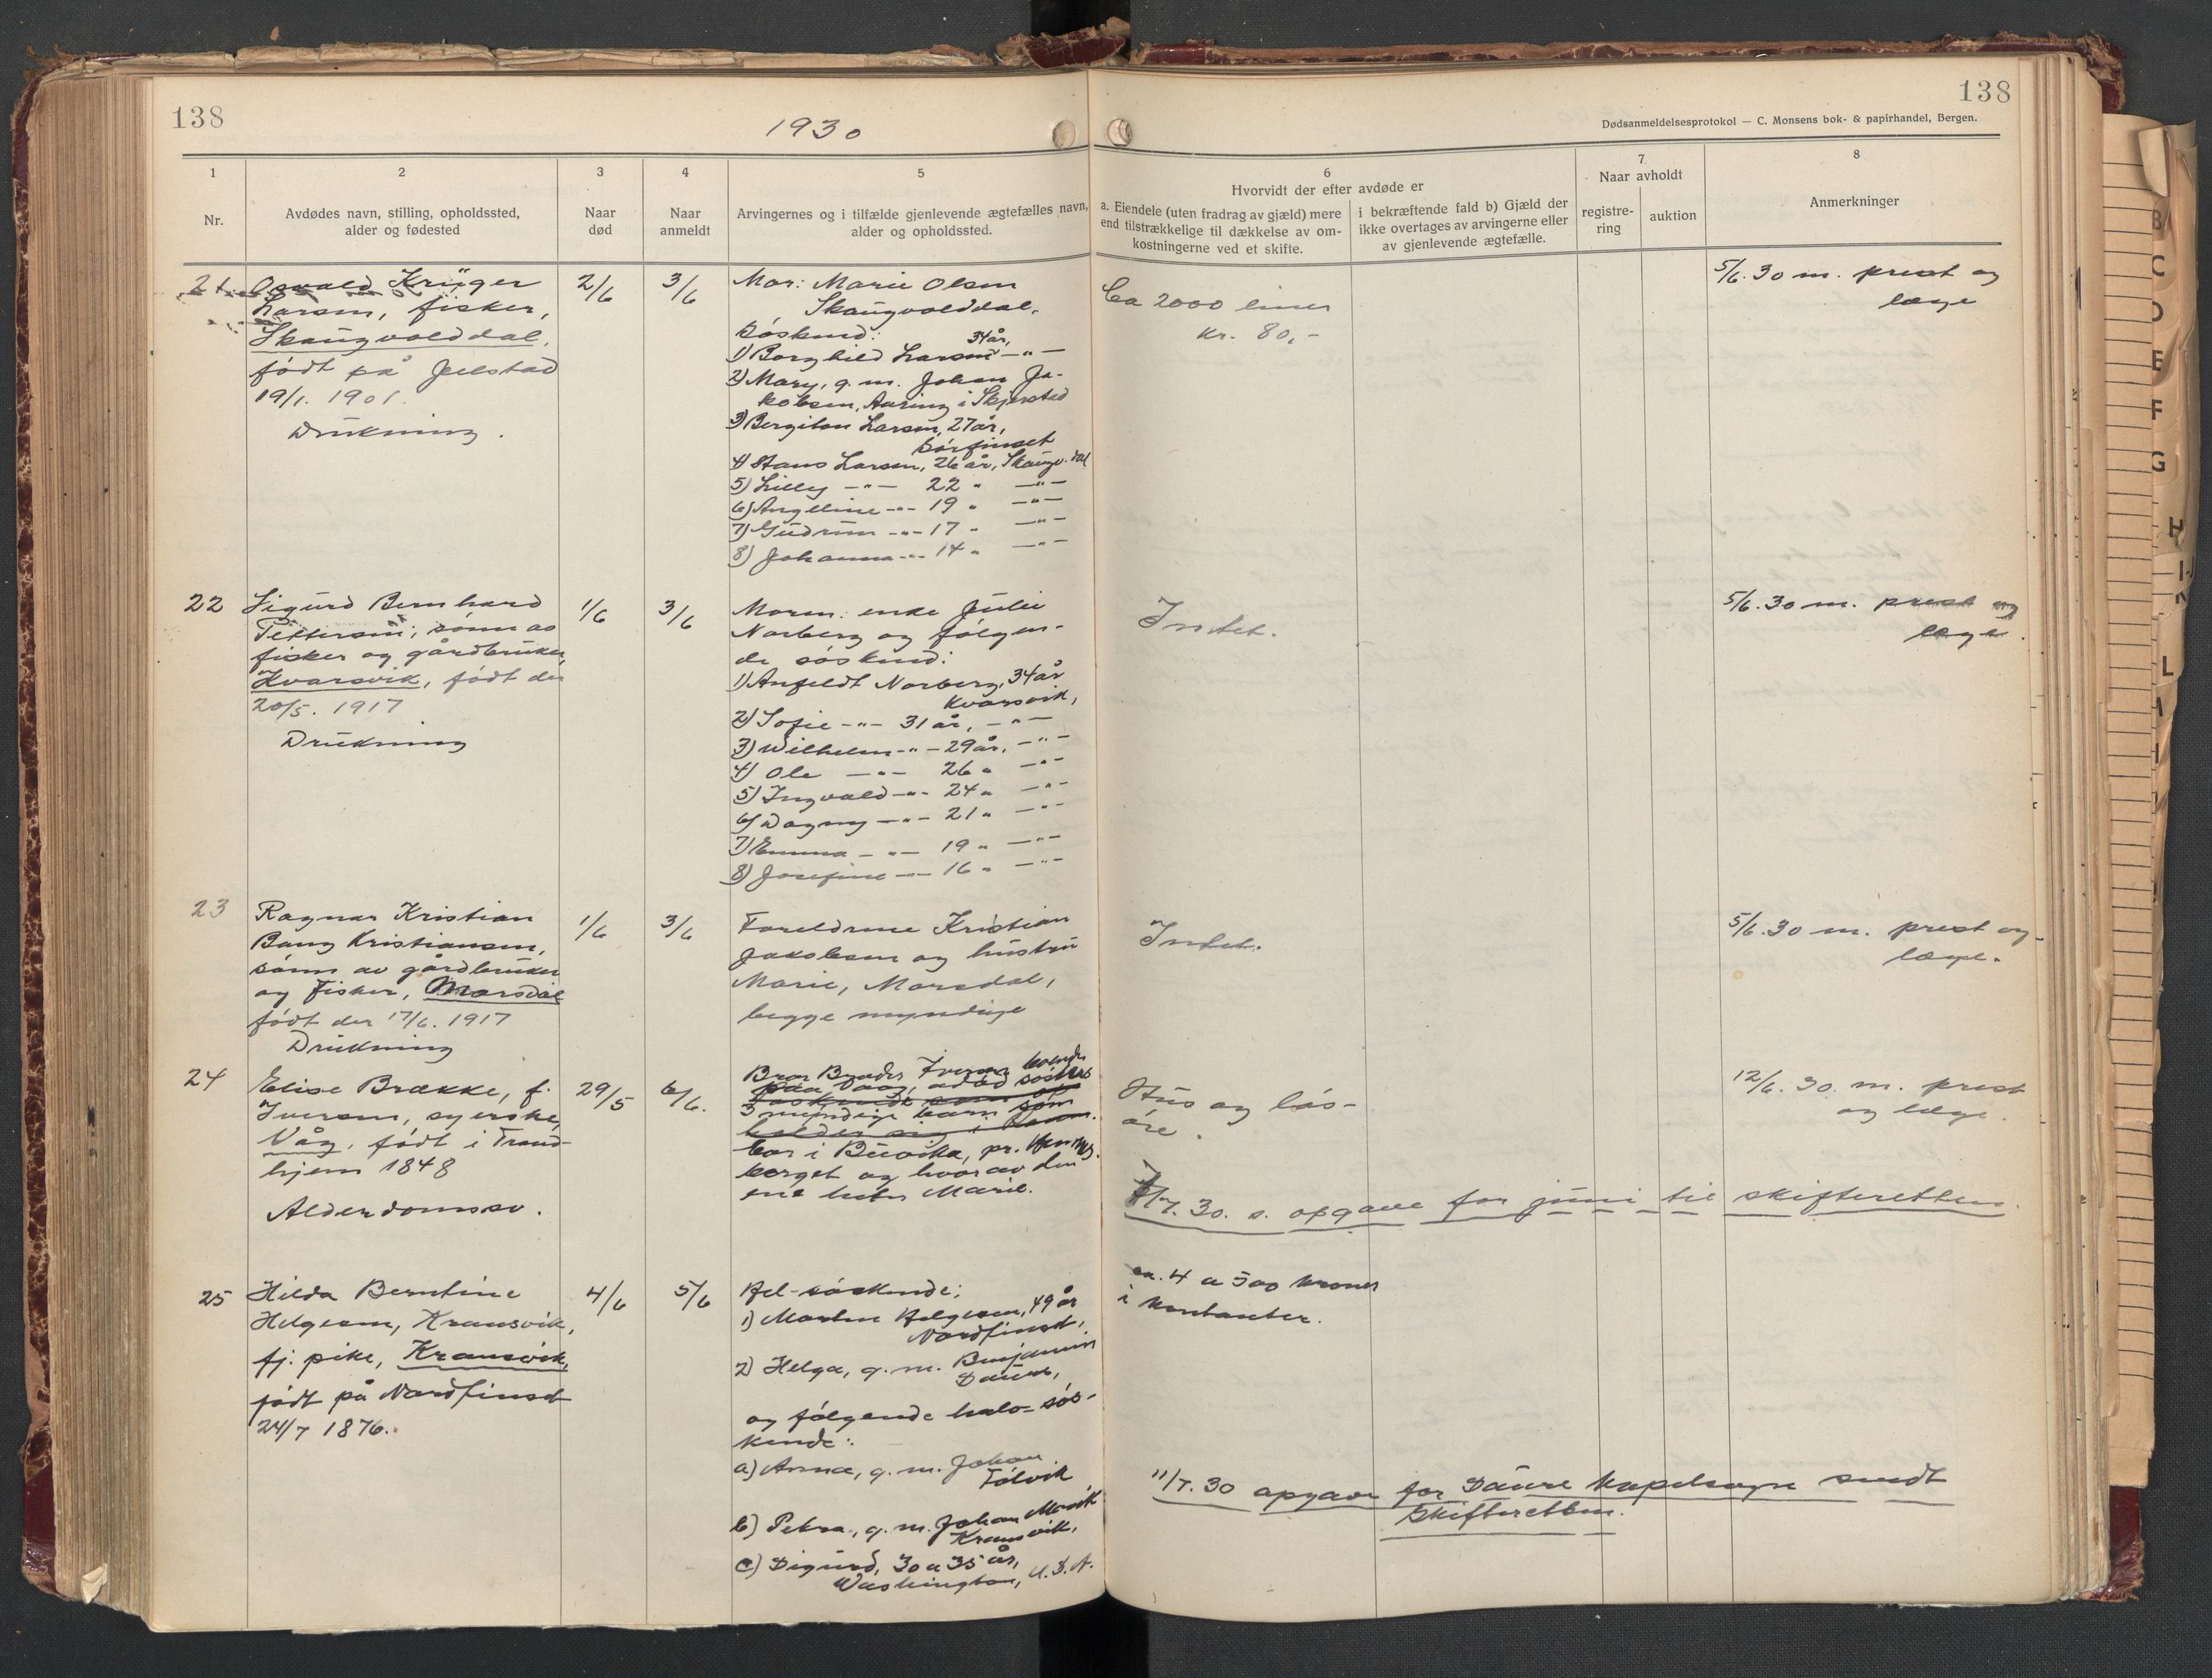 138
1930
138
Dødsanmeldelsesprotokol — C. Monsens bok- & papirhandel, Bergen.
1
2
3
4
5
6
7
8
Nr.
Avdødes navn, stilling, opholdssted,
alder og fødested
Naar
død
Naar
anmeldt
Arvingernes og i tilfælde gjenlevende ægtefælles navn,
alder og opholdssted.
Hvorvidt der efter avdøde er
a. Eiendele (uten fradrag av gjæld) mere
end tilstrækkelige til dækkelse av om-
kostningerne ved et skifte.
i bekræftende fald b) Gjæld der
ikke overtages av arvingerne eller
av gjenlevende ægtefælle.
Naar avholdt
registre-
ring
auktion
Anmerkninger
21. Osvald Krüger
Larsen, fisker,
Skaugvolddal,
født på Jelstad
19/1. 1901.
Drukning.
2/6
3/6
Mor: Marie Olsen
Skaugvolddal.
Søskend:
34 år,
1) Borghild Larsen —"—
2) Mary, g. m. Johan Ja-
kobsen, Aaring i Skjerstad
3) Bergiton Larsen, 27 år,
Sørfinset
4) Hans Larsen, 26 år, Skaugv.dal
5) Lilly —"— 22 " —"—
6) Angeline —"— 19 " —"—
7) Gudrun —"— 17 " —"—
8) Johanna —"— 14 " —"—
Ca 2000 liner
kr. 80,-
5/6. 30 m. prest og
læge
22
Sigurd Bernhard
Pettersen, sønn av
fisker og gårdbruker,
Kvarsvik, født den
20/5. 1917
Drukning
1/6
3/6
Moren: enke Julie
Norberg og følgen-
de søskend:
1) Anfeldt Norberg, 34 år
Kvarsvik,
2) Sofie —"— 31 år, —"—
3) Wilhelm —"— 29 år, —"—
4) Ole —"— 26 " —"—
5) Ingvald —"— 24 " —"—
6) Dagny —"— 21 " —"—
7) Emma —"— 19 " —"—
8) Josefine —"— 16 " —"—
Intet.
5/6. 30 m. prest og
læge.
23
Ragnar Kristian
Bang Kristiansen,
sønn av gårdbruker
og fisker, Marsdal
født den 17/6. 1917
Drukning
1/6
3/6
Foreldrene Kristian
Jakobsen og hustru
Marie, Marsdal,
begge myndige
Intet.
5/6. 30 m. prest og
læge.
24
Elise Brække, f.
Iversen, syerske,
Våg, født i Trond-
hjem 1848
Alderdomssv.
29/5
6/6.
Bror Iversen
3 myndige barn som
bor i Buvika, pr. Hemnes-
berget og hvorav den
ene heter Marie.
Hus og løs-
øre.
12/6. 30. m. prest
og læge.
7/7. 30. s. opgave for juni til skifteretten.
25
Hilda Berntine
Helgesen, Kransvik,
fj. pike, Kransvik,
født på Nordfinset
24/7 1876.
4/6
5/6
Hel-søskende:
1) Morten Helgesen, 49 år
Nordfinset,
2) Helga, g. m. Benjamin
Daure,
og følgende halv-søs-
kende:
a) Anna, g. m. Johan
Tølvik
b) Petra, g. m. Johan Marvik
Kransvik,
c) Sigurd, 30 a 35 år,
Washington, U.S.A.
ca. 4 a 500 kroner
i kontanter.
11/7. 30 opgave for Saure kapelsogn sendt
Skifteretten.
B
C
D
E
F
G
H
I
K
L